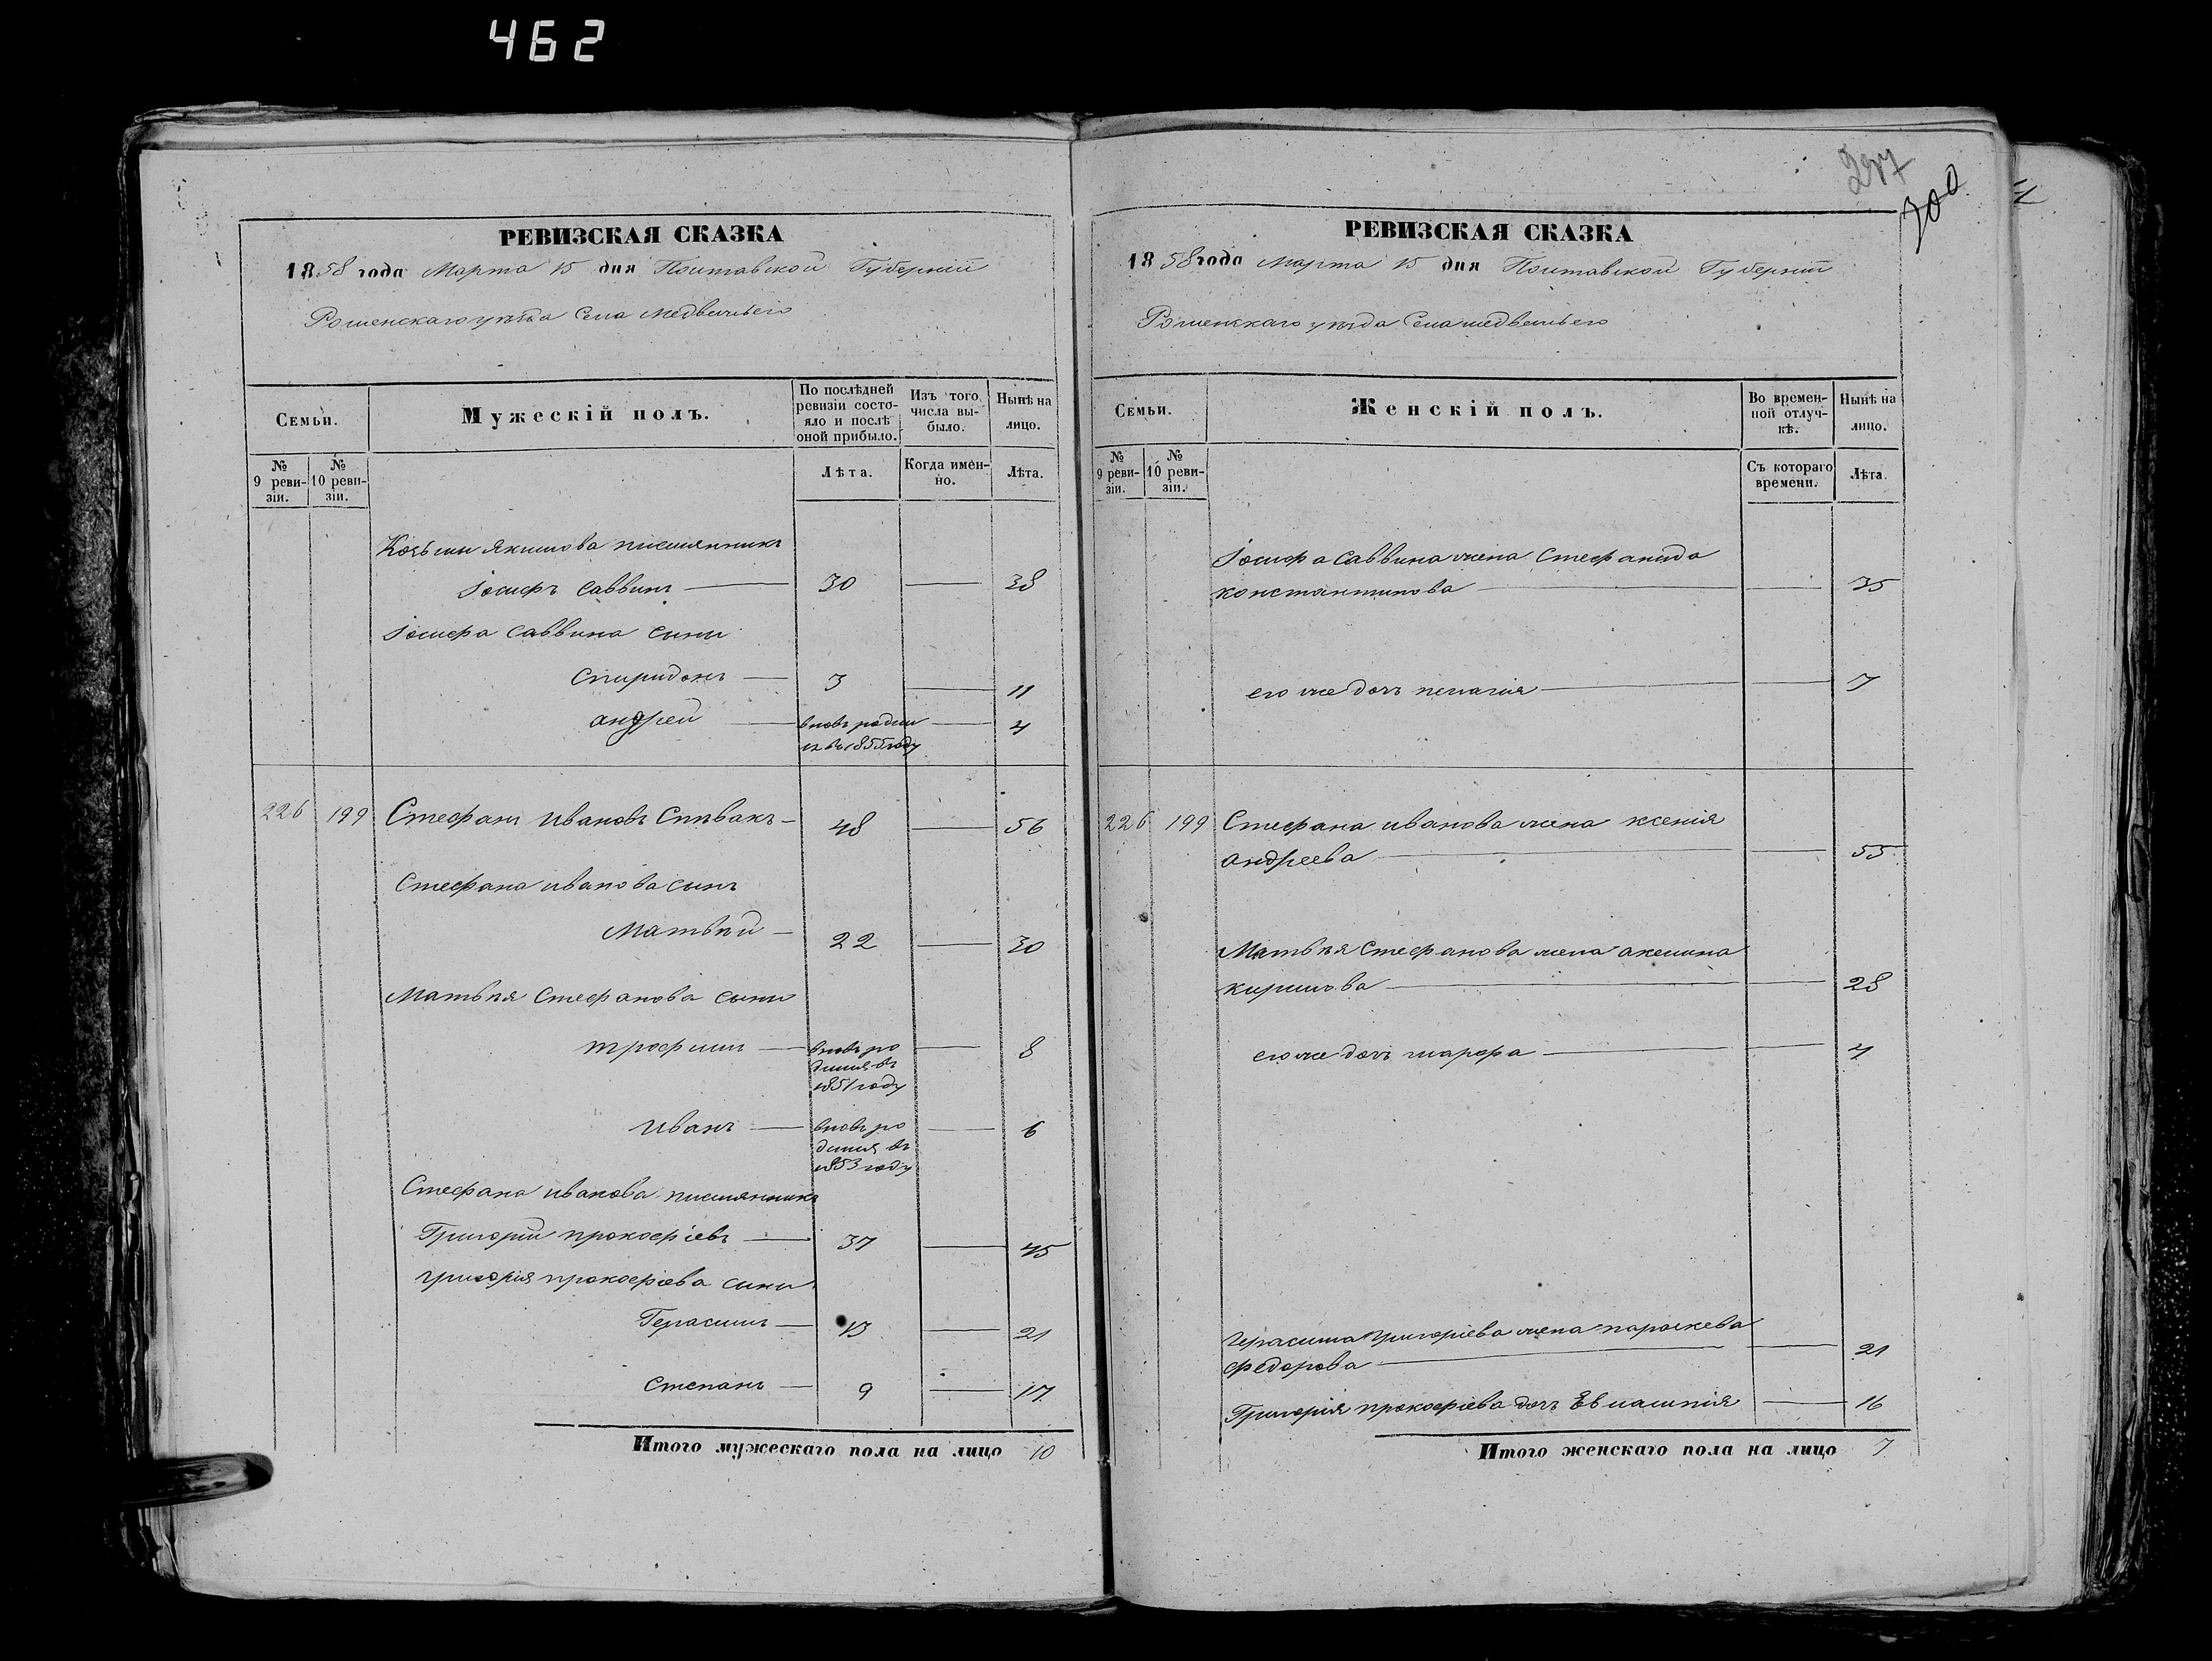 462
РЕВИЗСКАЯ СКАЗКА
1858 года Марта 15 дня Полтавской Губерніи
Роменскаго уѣзда Села Медвежьего
Семьи.
Мужескій полъ.
По послѣдней ревизіи состояло и послѣ оной прибыло.
Изъ того числа выбыло.
Нынѣ на лицо.
№ 9 ревизіи.
№ 10 ревизіи.
Лѣта.
Когда именно.
Лѣта.
Козьмы Якимова племянникъ
Іосифъ Саввинъ — 30 — 38
Іосифа Саввина сыны
Спиридонъ — 3 — 11
андрей — вновь родил — 4
ся въ 1855 году
226 199 Стефанъ Ивановъ Спѣвакъ — 48 — 56
Стефана иванова сынъ
Матвѣй — 22 — 30
Матвѣя Стефанова сыны
трофимъ — вновь ро — 8
дился въ
1851 году
иванъ — вновь ро — 6
дился въ
1853 году
Стефана иванова племянникъ
Григорій прокофіевъ — 37 — 45
григорія прокофіева сыны
Герасимъ — 13 — 21
Степанъ — 9 — 17
Итого мужескаго пола на лицо 10
287
300
РЕВИЗСКАЯ СКАЗКА
1858 года Марта 15 дня Полтавской Губерніи
Роменскаго уѣзда Села медвежьего
Семьи.
Женскій полъ.
Во временной отлучкѣ.
Нынѣ на лицо.
№ 9 ревизіи.
№ 10 ревизіи.
Съ котораго времени.
Лѣта.
Іосифа Саввина жена Стефанида
константинова — — 35
его же дочь пелагия — — 7
226 199 Стефана иванова жена ксенія
андреева — — 55
Матвѣя Стефанова жена акелина
кирилова — — 28
его же дочь марфа — — 4
Герасима григоріева жена параскева
федорова — — 21
Григорія прокофіева дочь — 16
Итого женскаго пола на лицо 7